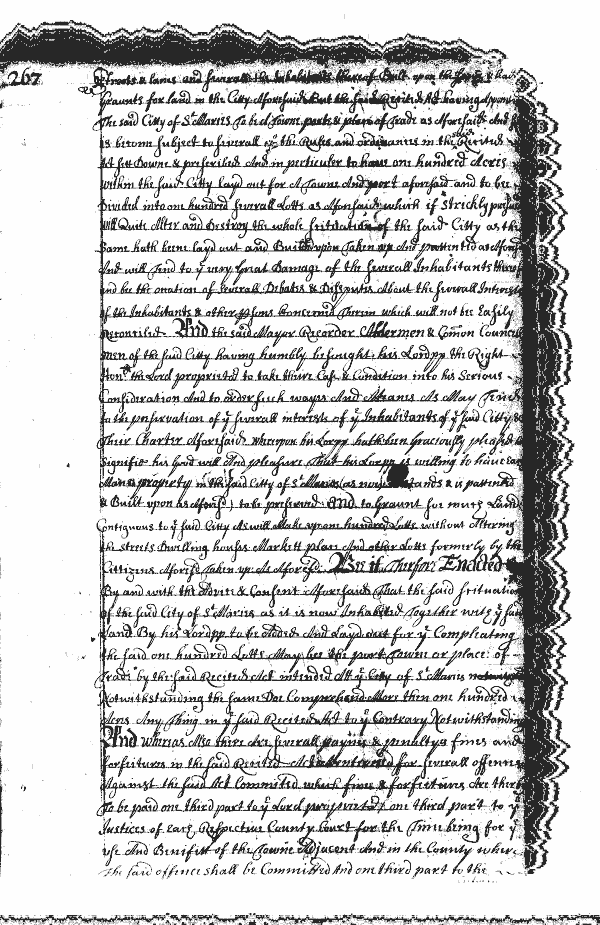 267
Streets & lanes and severall the Inhabitants thereof Built upon the
Graunts for land in the Citty Aforesaid But the said Recited Act having
The said City of St Maries To be A Towne port & place of Trade as Aforesaid And
is become subject to severall of the Rules and ordinances in the said Recited
Act sett Downe & prescribed And in perticuler to have one hundred Acres
within the said Citty layd out for A Towne And port aforesaid and to be
Divided into one hundred severall Lotts as Aforesaid which if Strickly
will Quite Alter and Destroy the whole scituation of the said Citty as the
Same hath been layd out and Builded upon Taken up And pattentid as
And will Tend to ye very Great Damage of the severall Inhabitants
and be the occation of severall Debates & Disputes About the severall
of the Inhabitants & other psons Concerned Therin which will not be Easily
Reconciled And the said Mayor Recorder Aldermen & Comon Councill
men of the said Citty having humbly besought his Lordpp the Right
Honble the Lord proprietor to take theire Case & Condition into his Serious
Consideration And to order such wayes And Meanes As May Tend
to the preservation of ye severall interests of ye Inhabitants of ye said Citty &
Their Charter Aforesaid whereupon his Lordpp hath been graciously pleased to
Signifie his Good will And pleasure That his Lordpp is willing to have
Mans property in the said Citty of St Maries (as now stands & is pattented
& Built upon as Aforesd) to be preserved And to graunt soe much Land
Contiguous to ye said Citty As will Make up one hundred Lotts without Altering
the streets Dwelling houses Markett place And other Lotts formerly by the
Cittizens Aforesd Taken up As Aforesd. Bee it Therfore Enacted
By and with the Advice & Consent Aforesaid That the said scituation
of the said City of St Maries as it is now Inhabited Together with ye said
Land By his Lordpp to be Added And Layd out for ye Compleating
the said one hundred Lotts May bee the port Towne or place of
Trade by the said Recited Act intended Att ye City of St Maries
Notwithstanding the same Doe Comprehend More then one hundred
Acres Any Thing in ye said Recited Act to ye Contrary Notwithstanding
And whereas Also there Are severall paynes & penaltys fines and
forfeitures in the said Recited Act for severall offences
Against the said Act Committed which fines & forfeitures Are there
To be paid one third part to ye Lord proprietor one third part to ye
Justices of each Respective County Court for the Time being for ye
use And Benifitt of the Towne Adjacent And in the County where
The said offence shall be Committed And one third part to the